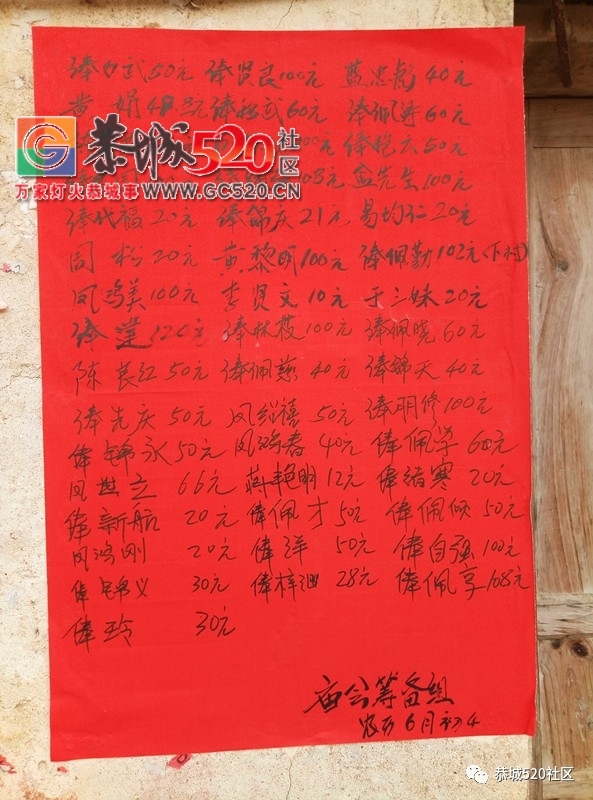 俸力武50元 俸贤良100元 蓝忠彪40元
黄娟 俸 武60元 俸佩涛60元
恭城520社区
00元 俸艳六50元
万家灯火恭城事 WWW.GC520.CN
103元 盘先生100元
俸代福20元 俸锦庆21元 易均仁20元
周松20元 黄黎明100元 俸佩勤102元(下村)
凤鸿美100元 李贤文10元 于三妹20元
俸莹120元 俸林枝100元 俸佩晓60元
陈长江50元 俸佩燕40元 俸锦天40元
俸先庆50元 凤绍禧50元 俸明修100元
俸锦永50元 凤鸿春40元 俸佩学60元
凤世立66元 蒋艳明12元 俸绪寒20元
俸新航20元 俸佩才50元 俸佩倾50元
凤鸿刚20元 俸洋50元 俸自强100元
俸锦义30元 俸梓 28元 俸佩享108元
俸玲30元
庙会筹备组
农历6月初4
恭城520社区